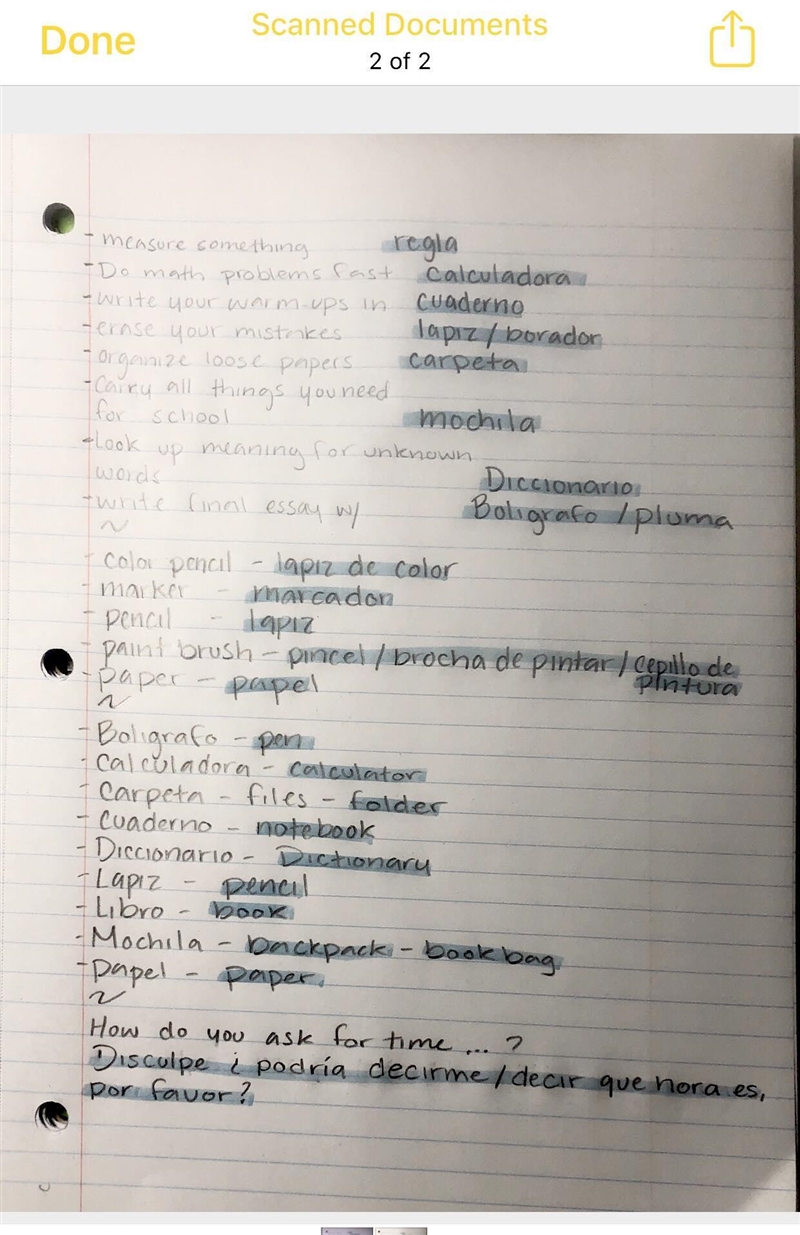 Done
Scanned Documents
2 of 2
- measure something regla
- Do math problems fast calculadora
- write your warm-ups in cuaderno
- erase your mistakes lapiz / borador
- organize loose papers carpeta
- Carry all things you need
for school mochila
- Look up meaning for unknown
words Diccionario
- write final essay w/ Boligrafo / pluma
~
- color pencil - lapiz de color
- marker - marcador
- pencil - lapiz
- paint brush - pincel / brocha de pintar / cepillo de
pintura
- paper - papel
~
- Boligrafo - pen
- Calculadora - calculator
- Carpeta - files - folder
- Cuaderno - notebook
- Diccionario - Dictionary
- Lapiz - pencil
- Libro - book
- Mochila - backpack - bookbag
- papel - paper
~
How do you ask for time ... ?
Disculpe ¿ podría decirme / decir que hora es,
por favor?